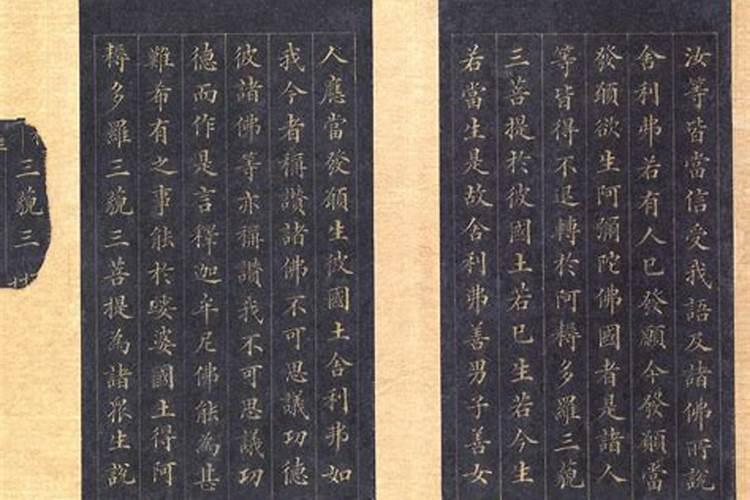 汝等皆當信受我語及諸佛所說
舍利弗若有人已發願今發願當
發願欲生阿彌陀佛國者是諸人
等皆得不退轉於阿耨多羅三藐
三菩提於彼國土若已生若今生
若當生是故舍利弗善男子善女
人應當發願生彼國土舍利弗如
我今者稱讚諸佛不可思議功德
彼諸佛等亦稱讚我不可思議功
德而作是言釋迦牟尼佛能為甚
難希有之事能於娑婆國土得阿
耨多羅三藐三菩提為諸眾生說
三藐三